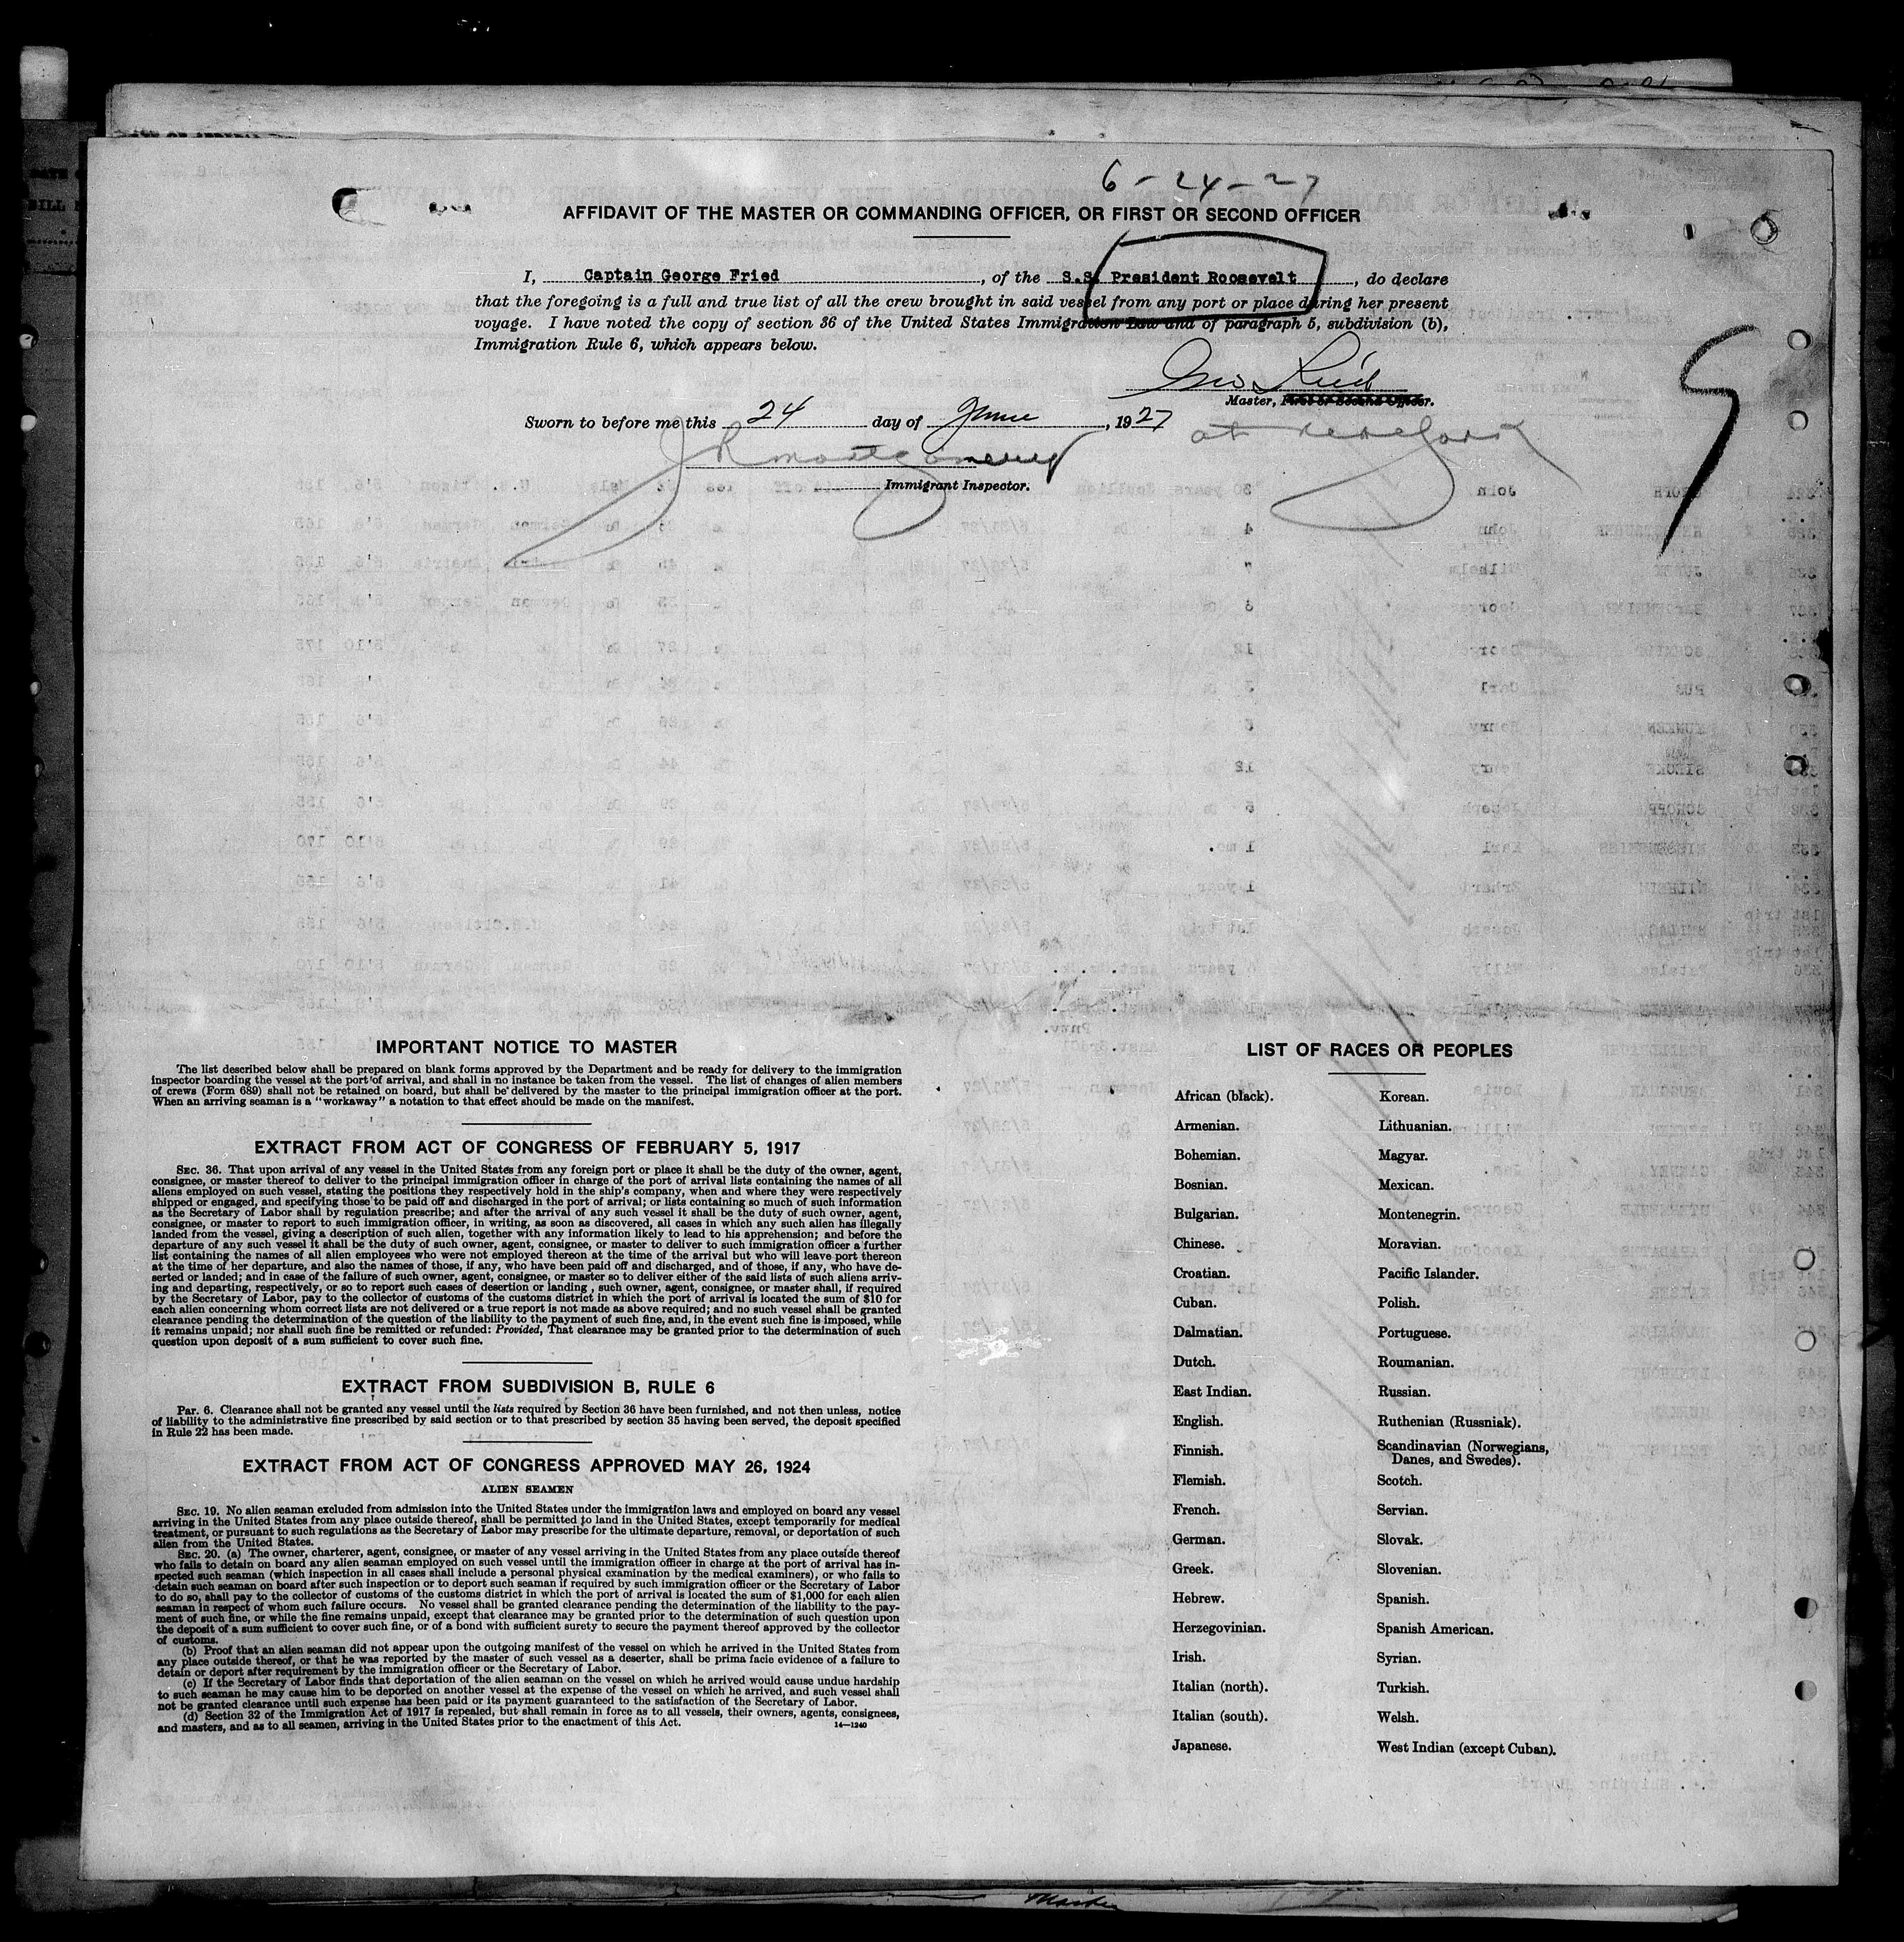 6-24-27
AFFIDAVIT OF THE MASTER OR COMMANDING OFFICER, OR FIRST OR SECOND OFFICER
I, Captain George Fried, of the S.S. President Roosevelt, do declare
that the foregoing is a full and true list of all the crew brought in said vessel from any port or place during her present
voyage. I have noted the copy of section 36 of the United States Immigration Law and of paragraph 5, subdivision (b),
Immigration Rule 6, which appears below.
Geo Fried
Master, First or Second Officer.
Sworn to before me this 24 day of June, 1927
at New York
J R Montgomery
Immigrant Inspector.
IMPORTANT NOTICE TO MASTER
The list described below shall be prepared on blank forms approved by the Department and be ready for delivery to the immigration
inspector boarding the vessel at the port of arrival, and shall in no instance be taken from the vessel. The list of changes of alien members
of crews (Form 689) shall not be retained on board, but shall be delivered by the master to the principal immigration officer at the port.
When an arriving seaman is a "workaway" a notation to that effect should be made on the manifest.
EXTRACT FROM ACT OF CONGRESS OF FEBRUARY 5, 1917
SEC. 36. That upon arrival of any vessel in the United States from any foreign port or place it shall be the duty of the owner, agent,
consignee, or master thereof to deliver to the principal immigration officer in charge of the port of arrival lists containing the names of all
aliens employed on such vessel, stating the positions they respectively hold in the ship's company, when and where they were respectively
shipped or engaged, and specifying those to be paid off and discharged in the port of arrival; or lists containing so much of such information
as the Secretary of Labor shall by regulation prescribe; and after the arrival of any such vessel it shall be the duty of such owner, agent,
consignee, or master to report to such immigration officer, in writing, as soon as discovered, all cases in which any such alien has illegally
landed from the vessel, giving a description of such alien, together with any information likely to lead to his apprehension; and before the
departure of any such vessel it shall be the duty of such owner, agent, consignee, or master to deliver to such immigration officer a further
list containing the names of all alien employees who were not employed thereon at the time of the arrival but who will leave port thereon
at the time of her departure, and also the names of those, if any, who have been paid off and discharged, and of those, if any, who have de-
serted or landed; and in case of the failure of such owner, agent, consignee, or master so to deliver either of the said lists of such aliens arriv-
ing and departing, respectively, or so to report such cases of desertion or landing, such owner, agent, consignee, or master shall, if required
by the Secretary of Labor, pay to the collector of customs of the customs district in which the port of arrival is located the sum of $10 for
each alien concerning whom correct lists are not delivered or a true report is not made as above required; and no such vessel shall be granted
clearance pending the determination of the question of the liability to the payment of such fine, and, in the event such fine is imposed, while
it remains unpaid; nor shall such fine be remitted or refunded: Provided, That clearance may be granted prior to the determination of such
question upon deposit of a sum sufficient to cover such fine.
EXTRACT FROM SUBDIVISION B, RULE 6
Par. 6. Clearance shall not be granted any vessel until the lists required by Section 36 have been furnished, and not then unless, notice
of liability to the administrative fine prescribed by said section or to that prescribed by section 35 having been served, the deposit specified
in Rule 22 has been made.
EXTRACT FROM ACT OF CONGRESS APPROVED MAY 26, 1924
ALIEN SEAMEN
SEC. 19. No alien seaman excluded from admission into the United States under the immigration laws and employed on board any vessel
arriving in the United States from any place outside thereof, shall be permitted to land in the United States, except temporarily for medical
treatment, or pursuant to such regulations as the Secretary of Labor may prescribe for the ultimate departure, removal, or deportation of such
alien from the United States.
SEC. 20. (a) The owner, charterer, agent, consignee, or master of any vessel arriving in the United States from any place outside thereof
who fails to detain on board any alien seaman employed on such vessel until the immigration officer in charge at the port of arrival has in-
spected such seaman (which inspection in all cases shall include a personal physical examination by the medical examiners), or who fails to
detain such seaman on board after such inspection or to deport such seaman if required by such immigration officer or the Secretary of Labor
to do so, shall pay to the collector of customs of the customs district in which the port of arrival is located the sum of $1,000 for each alien
seaman in respect of whom such failure occurs. No vessel shall be granted clearance pending the determination of the liability to the pay-
ment of such fine, or while the fine remains unpaid, except that clearance may be granted prior to the determination of such question upon
the deposit of a sum sufficient to cover such fine, or of a bond with sufficient surety to secure the payment thereof approved by the collector
of customs.
(b) Proof that an alien seaman did not appear upon the outgoing manifest of the vessel on which he arrived in the United States from
any place outside thereof, or that he was reported by the master of such vessel as a deserter, shall be prima facie evidence of a failure to
detain or deport after requirement by the immigration officer or the Secretary of Labor.
(c) If the Secretary of Labor finds that deportation of the alien seaman on the vessel on which he arrived would cause undue hardship
to such seaman he may cause him to be deported on another vessel at the expense of the vessel on which he arrived, and such vessel shall
not be granted clearance until such expense has been paid or its payment guaranteed to the satisfaction of the Secretary of Labor.
(d) Section 32 of the Immigration Act of 1917 is repealed, but shall remain in force as to all vessels, their owners, agents, consignees,
and masters, and as to all seamen, arriving in the United States prior to the enactment of this Act.
14—1240
LIST OF RACES OR PEOPLES
African (black).
Armenian.
Bohemian.
Bosnian.
Bulgarian.
Chinese.
Croatian.
Cuban.
Dalmatian.
Dutch.
East Indian.
English.
Finnish.
Flemish.
French.
German.
Greek.
Hebrew.
Herzegovinian.
Irish.
Italian (north).
Italian (south).
Japanese.
Korean.
Lithuanian.
Magyar.
Mexican.
Montenegrin.
Moravian.
Pacific Islander.
Polish.
Portuguese.
Roumanian.
Russian.
Ruthenian (Russniak).
Scandinavian (Norwegians,
Danes, and Swedes).
Scotch.
Servian.
Slovak.
Slovenian.
Spanish.
Spanish American.
Syrian.
Turkish.
Welsh.
West Indian (except Cuban).
Master